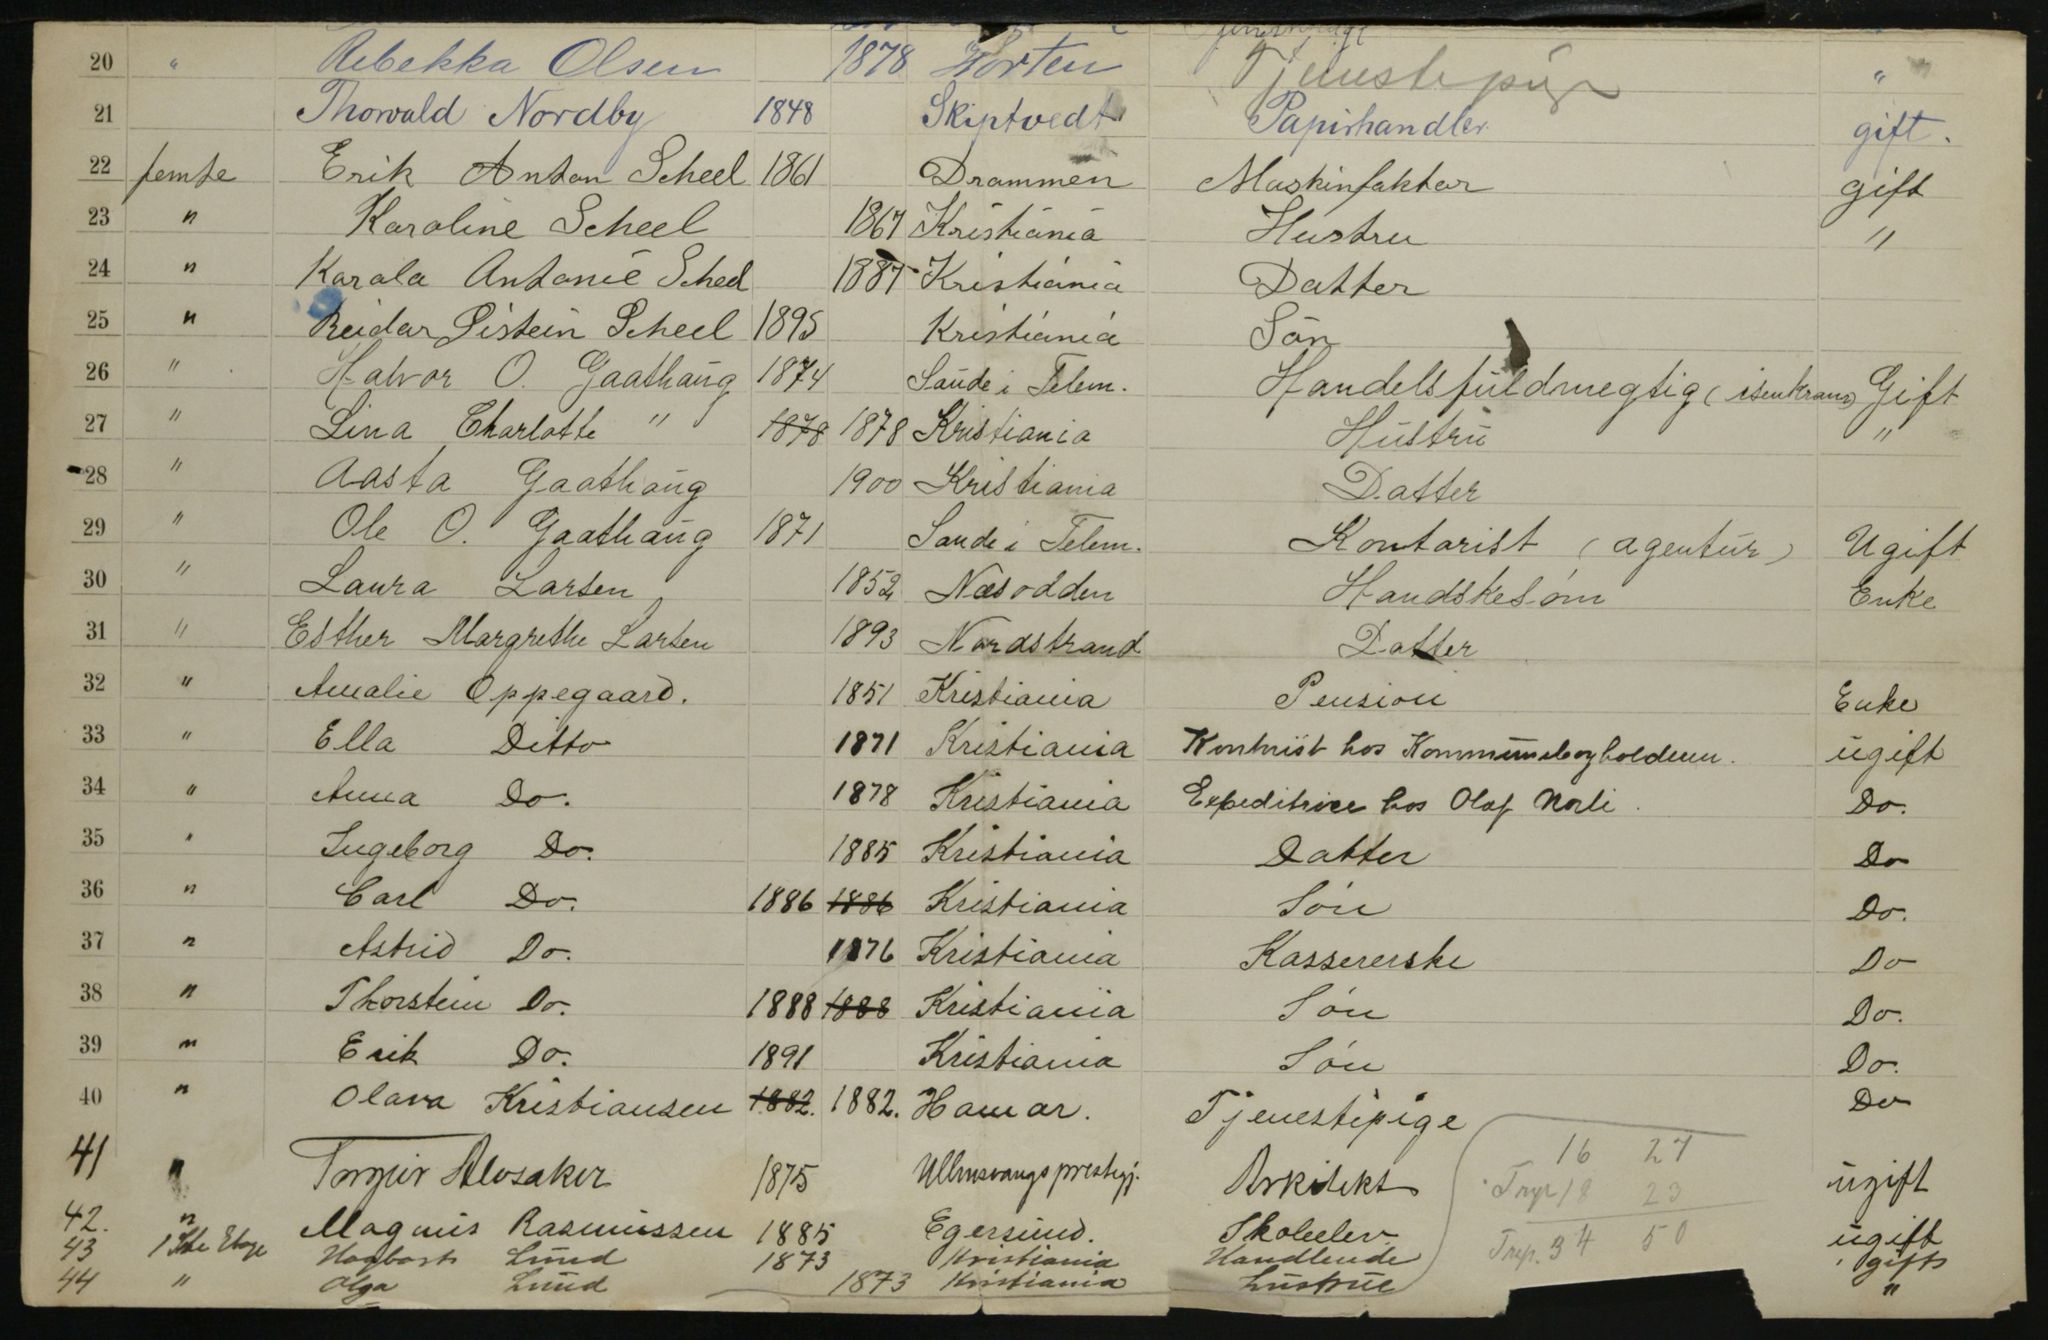 20 " Rebekka Olsen 1878 Horten Tjenestepige "
21 Thorvald Nordby 1848 Skiptvedt Papirhandler gift.
22 femte Erik Anton Scheel 1861 Drammen Maskinfaktor gift
23 " Karoline Scheel 1867 Kristiania Hustru "
24 " Karala Antonie Scheel 1887 Kristiania Datter
25 " Reidar Öistein Scheel 1895 Kristiania Sön
26 " Halvor O. Gaathaug 1874 Saude i Telem. Handelsfuldmegtig (isenkram) Gift
27 " Lina Charlotte " 1878 1878 Kristiania Hustru "
28 " Aasta Gaathaug 1900 Kristiania Datter
29 " Ole O. Gaathaug 1871 Saude i Telem. Kontorist (agentur) Ugift
30 " Laura Larsen 1852 Næsodden Handskesöm Enke
31 " Esther Margrethe Larsen 1893 Nordstrand Datter
32 " Amalie Oppegaard. 1851 Kristiania Pension Enke
33 " Ella Ditto 1871 Kristiania Kontorist hos Kommunebogholderen. ugift
34 " Anna Do. 1878 Kristiania Expeditrice hos Olaf Norli. Do.
35 " Ingeborg Do. 1885 Kristiania Datter Do
36 " Carl Do. 1886 1886 Kristiania Sön Do.
37 " Astrid Do. 1876 Kristiania Kassererske Do
38 " Thorstein Do. 1888 1888 Kristiania Sön Do.
39 " Erik Do. 1891 Kristiania Sön Do.
40 " Olava Kristiansen 1882. 1882. Hamar. Tjenestepige Do
41 " Torgeir Alvsaker 1875 Ullensvangs prestegj. Arkitekt ugift
16 27
18 23
34 50
42. " Magnus Rasmussen 1885 Egersund. Skoleelev ugift
43 1ste Etage Hagbart Lund 1873 Kristiania Handlende gift
44 " Olga Lund 1873 Kristiania Hustrue "